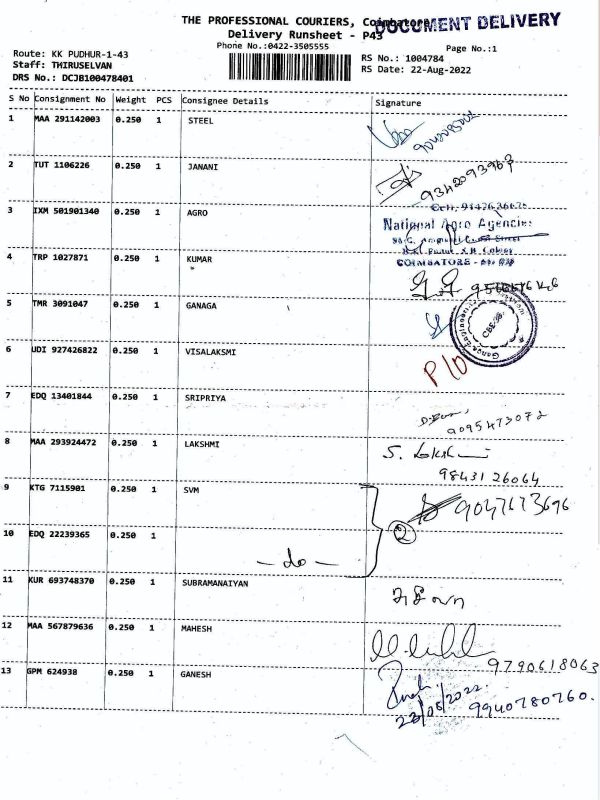 THE PROFESSIONAL COURIERS, Coimbatore
DOCUMENT DELIVERY
Delivery Runsheet - P43
Phone No.:0422-3505555
Page No.:1
Route: KK PUDHUR-1-43
Staff: THIRUSELVAN
DRS No.: DCJB100478401
RS No.: 1004784
RS Date: 22-Aug-2022
S No Consignment No Weight PCS Consignee Details Signature
1 MAA 291142003 0.250 1 STEEL
2 TUT 1106226 0.250 1 JANANI
9342093963
3 IXM 501901340 0.250 1 AGRO
National Agro Agencies
COIMBATORE
4 TRP 1027871 0.250 1 KUMAR
5 TMR 3091047 0.250 1 GANAGA
CBE-38
6 UDI 927426822 0.250 1 VISALAKSMI
P/D
7 EDQ 13401844 0.250 1 SRIPRIYA
9095473072
8 MAA 293924472 0.250 1 LAKSHMI
S. Lakshmi
9843126064
9 KTG 7115901 0.250 1 SVM
9047673696
10 EDQ 22239365 0.250 1
2
- do -
11 KUR 693748370 0.250 1 SUBRAMANAIYAN
12 MAA 567879636 0.250 1 MAHESH
9790618063
13 GPM 624938 0.250 1 GANESH
23/08/2022
9940780760.